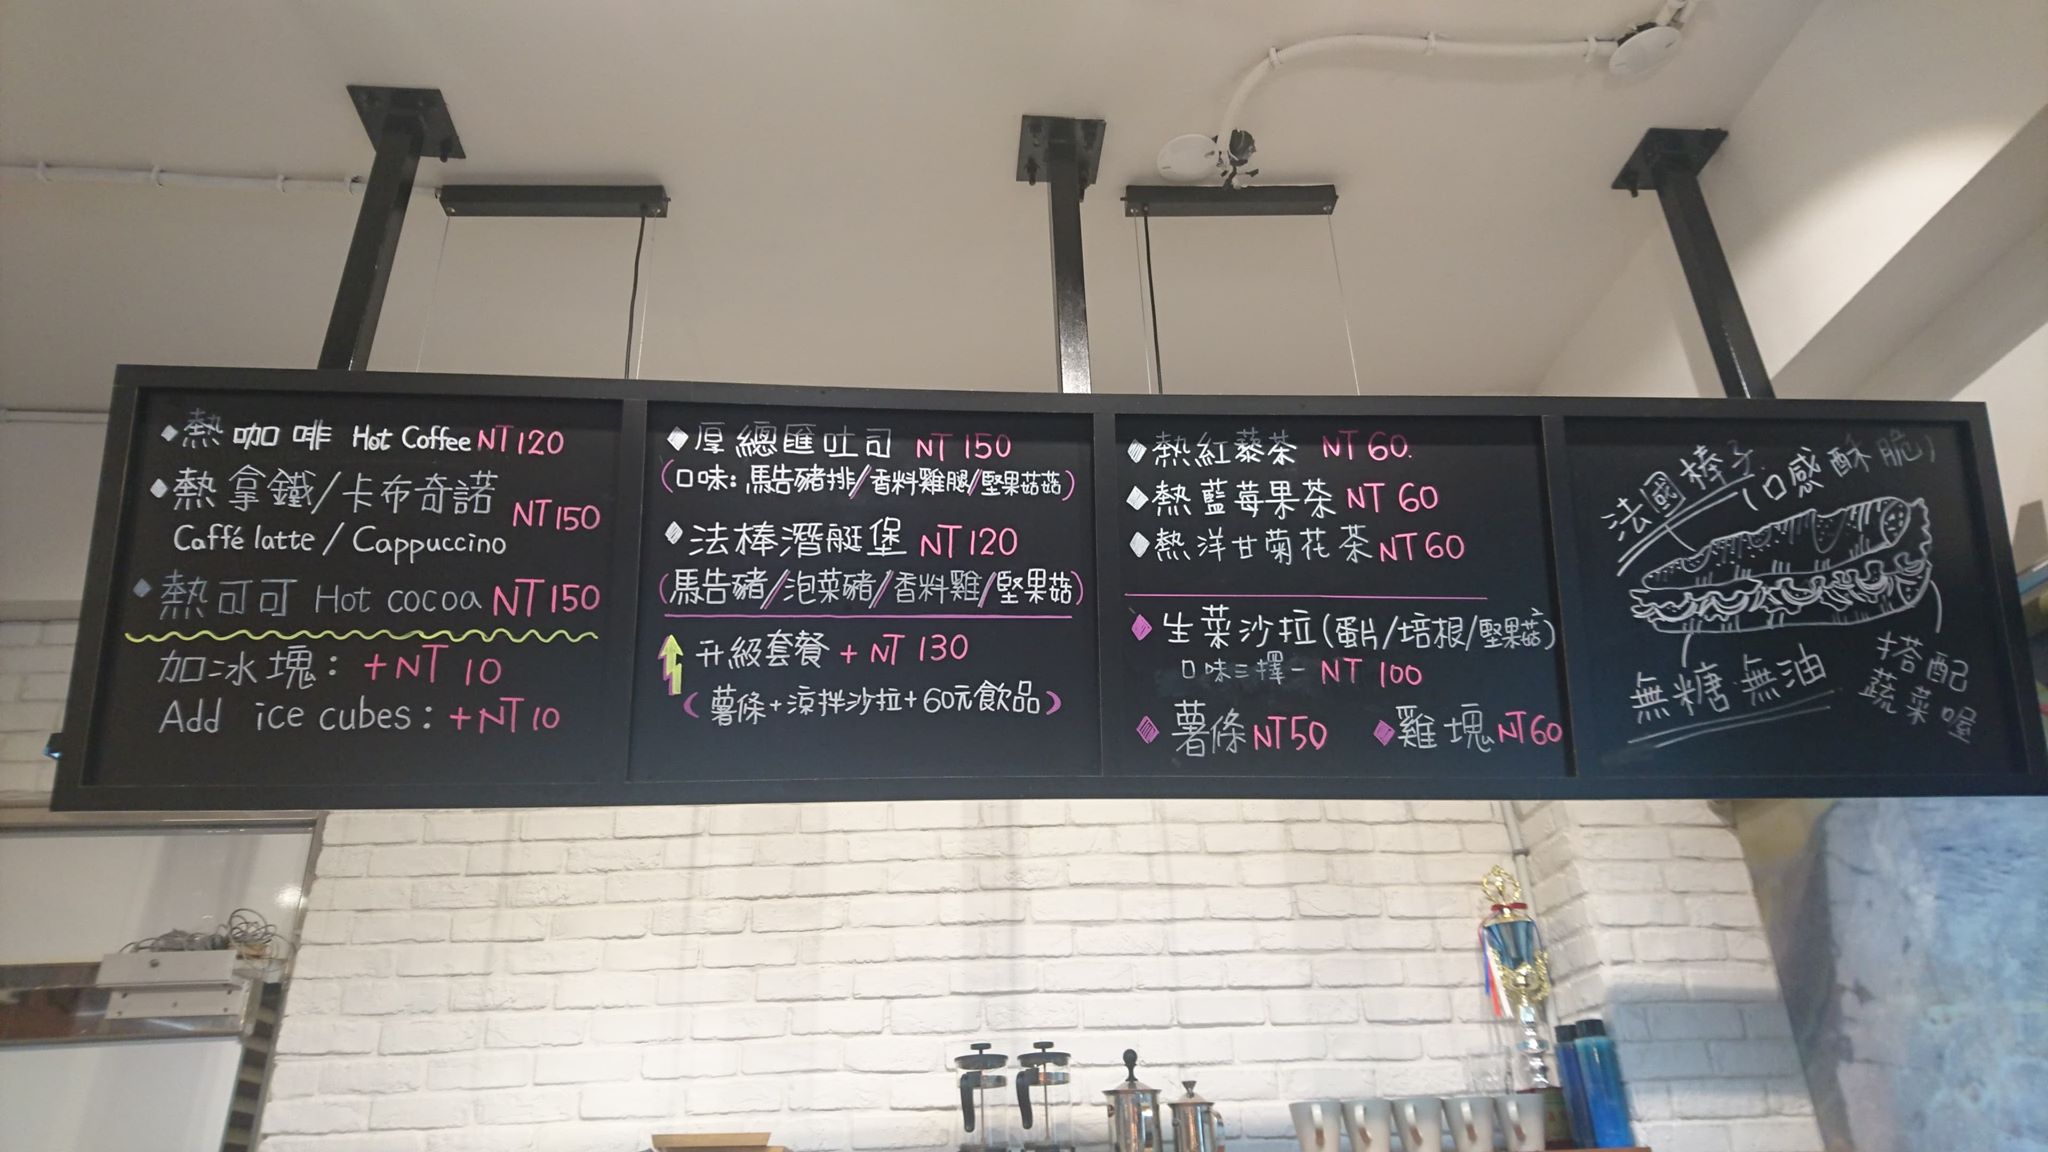 熱咖啡 Hot Coffee NT 120
熱拿鐵/卡布奇諾
Caffé latte / Cappuccino NT 150
熱可可 Hot cocoa NT 150
加冰塊: +NT 10
Add ice cubes: +NT 10
厚總匯吐司 NT 150
(口味: 馬告豬排/香料雞腿/堅果菇菇)
法棒潛艇堡 NT 120
(馬告豬/泡菜豬/香料雞/堅果菇)
升級套餐 + NT 130
(薯條+涼拌沙拉+60元飲品)
熱紅藜茶 NT 60.
熱藍莓果茶 NT 60
熱洋甘菊花茶 NT 60
生菜沙拉(蛋片/培根/堅果菇)
口味三擇一 NT 100
薯條 NT 50 雞塊 NT 60
法國棒子
(口感酥脆)
無糖·無油
搭配
蔬菜喔